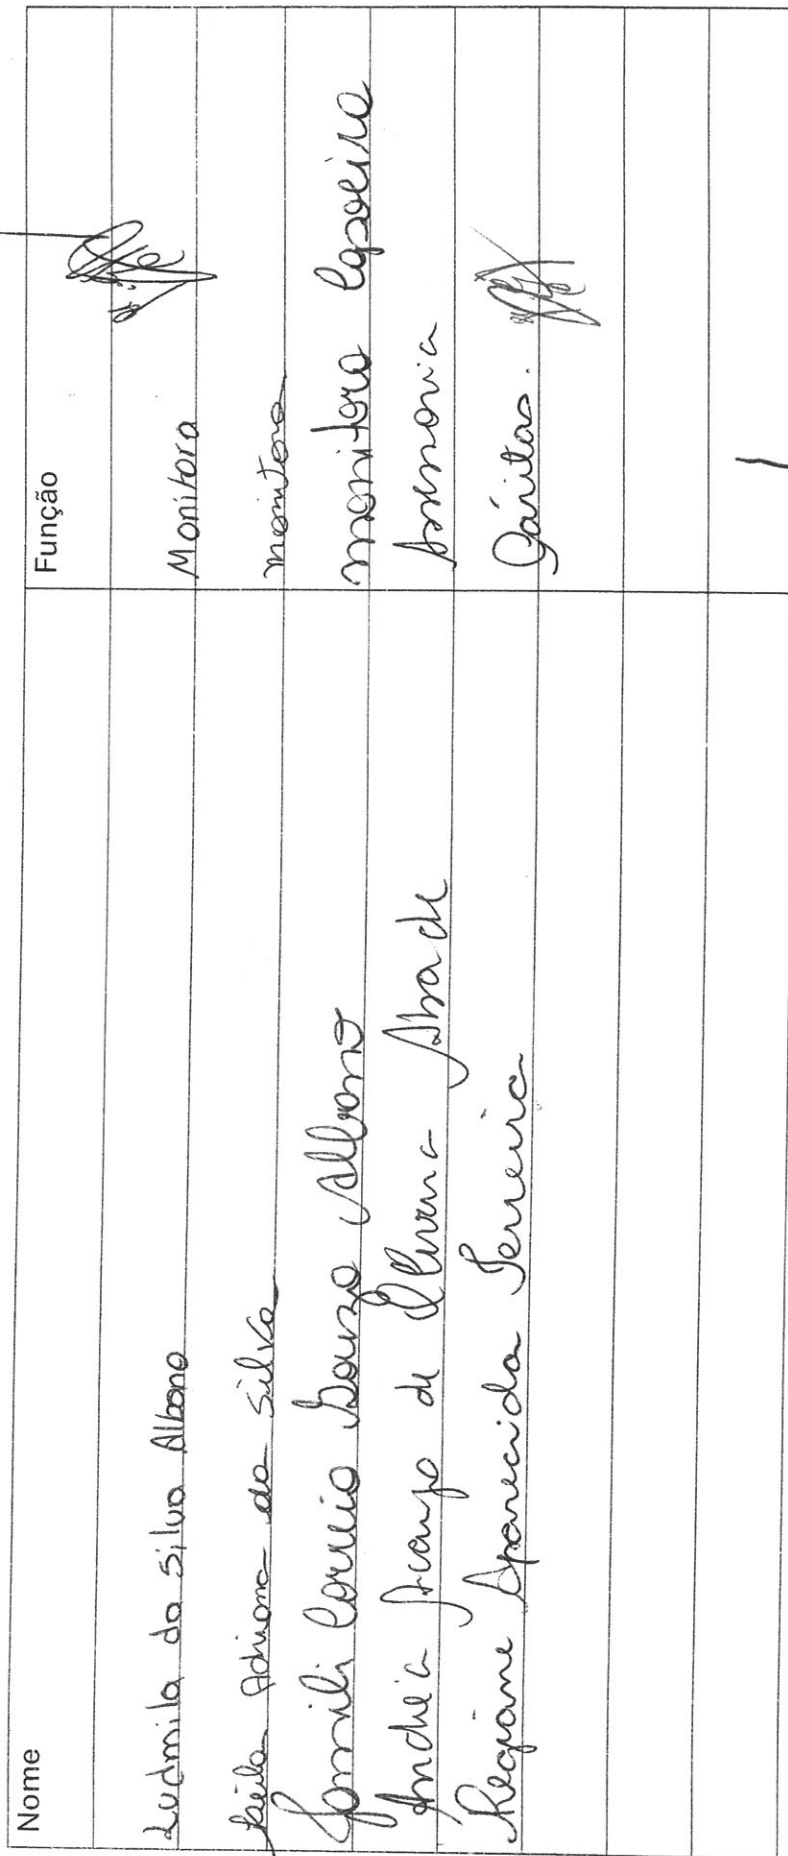 Nome Função
Ludmila da Silva Albano Monitora
Leila Adriana da Silva monitora
Correia Souza Albano monitora
Andréia Araujo de Oliveira Abade Assessoria
Regiane Aparecida Ferreira Cáritas.